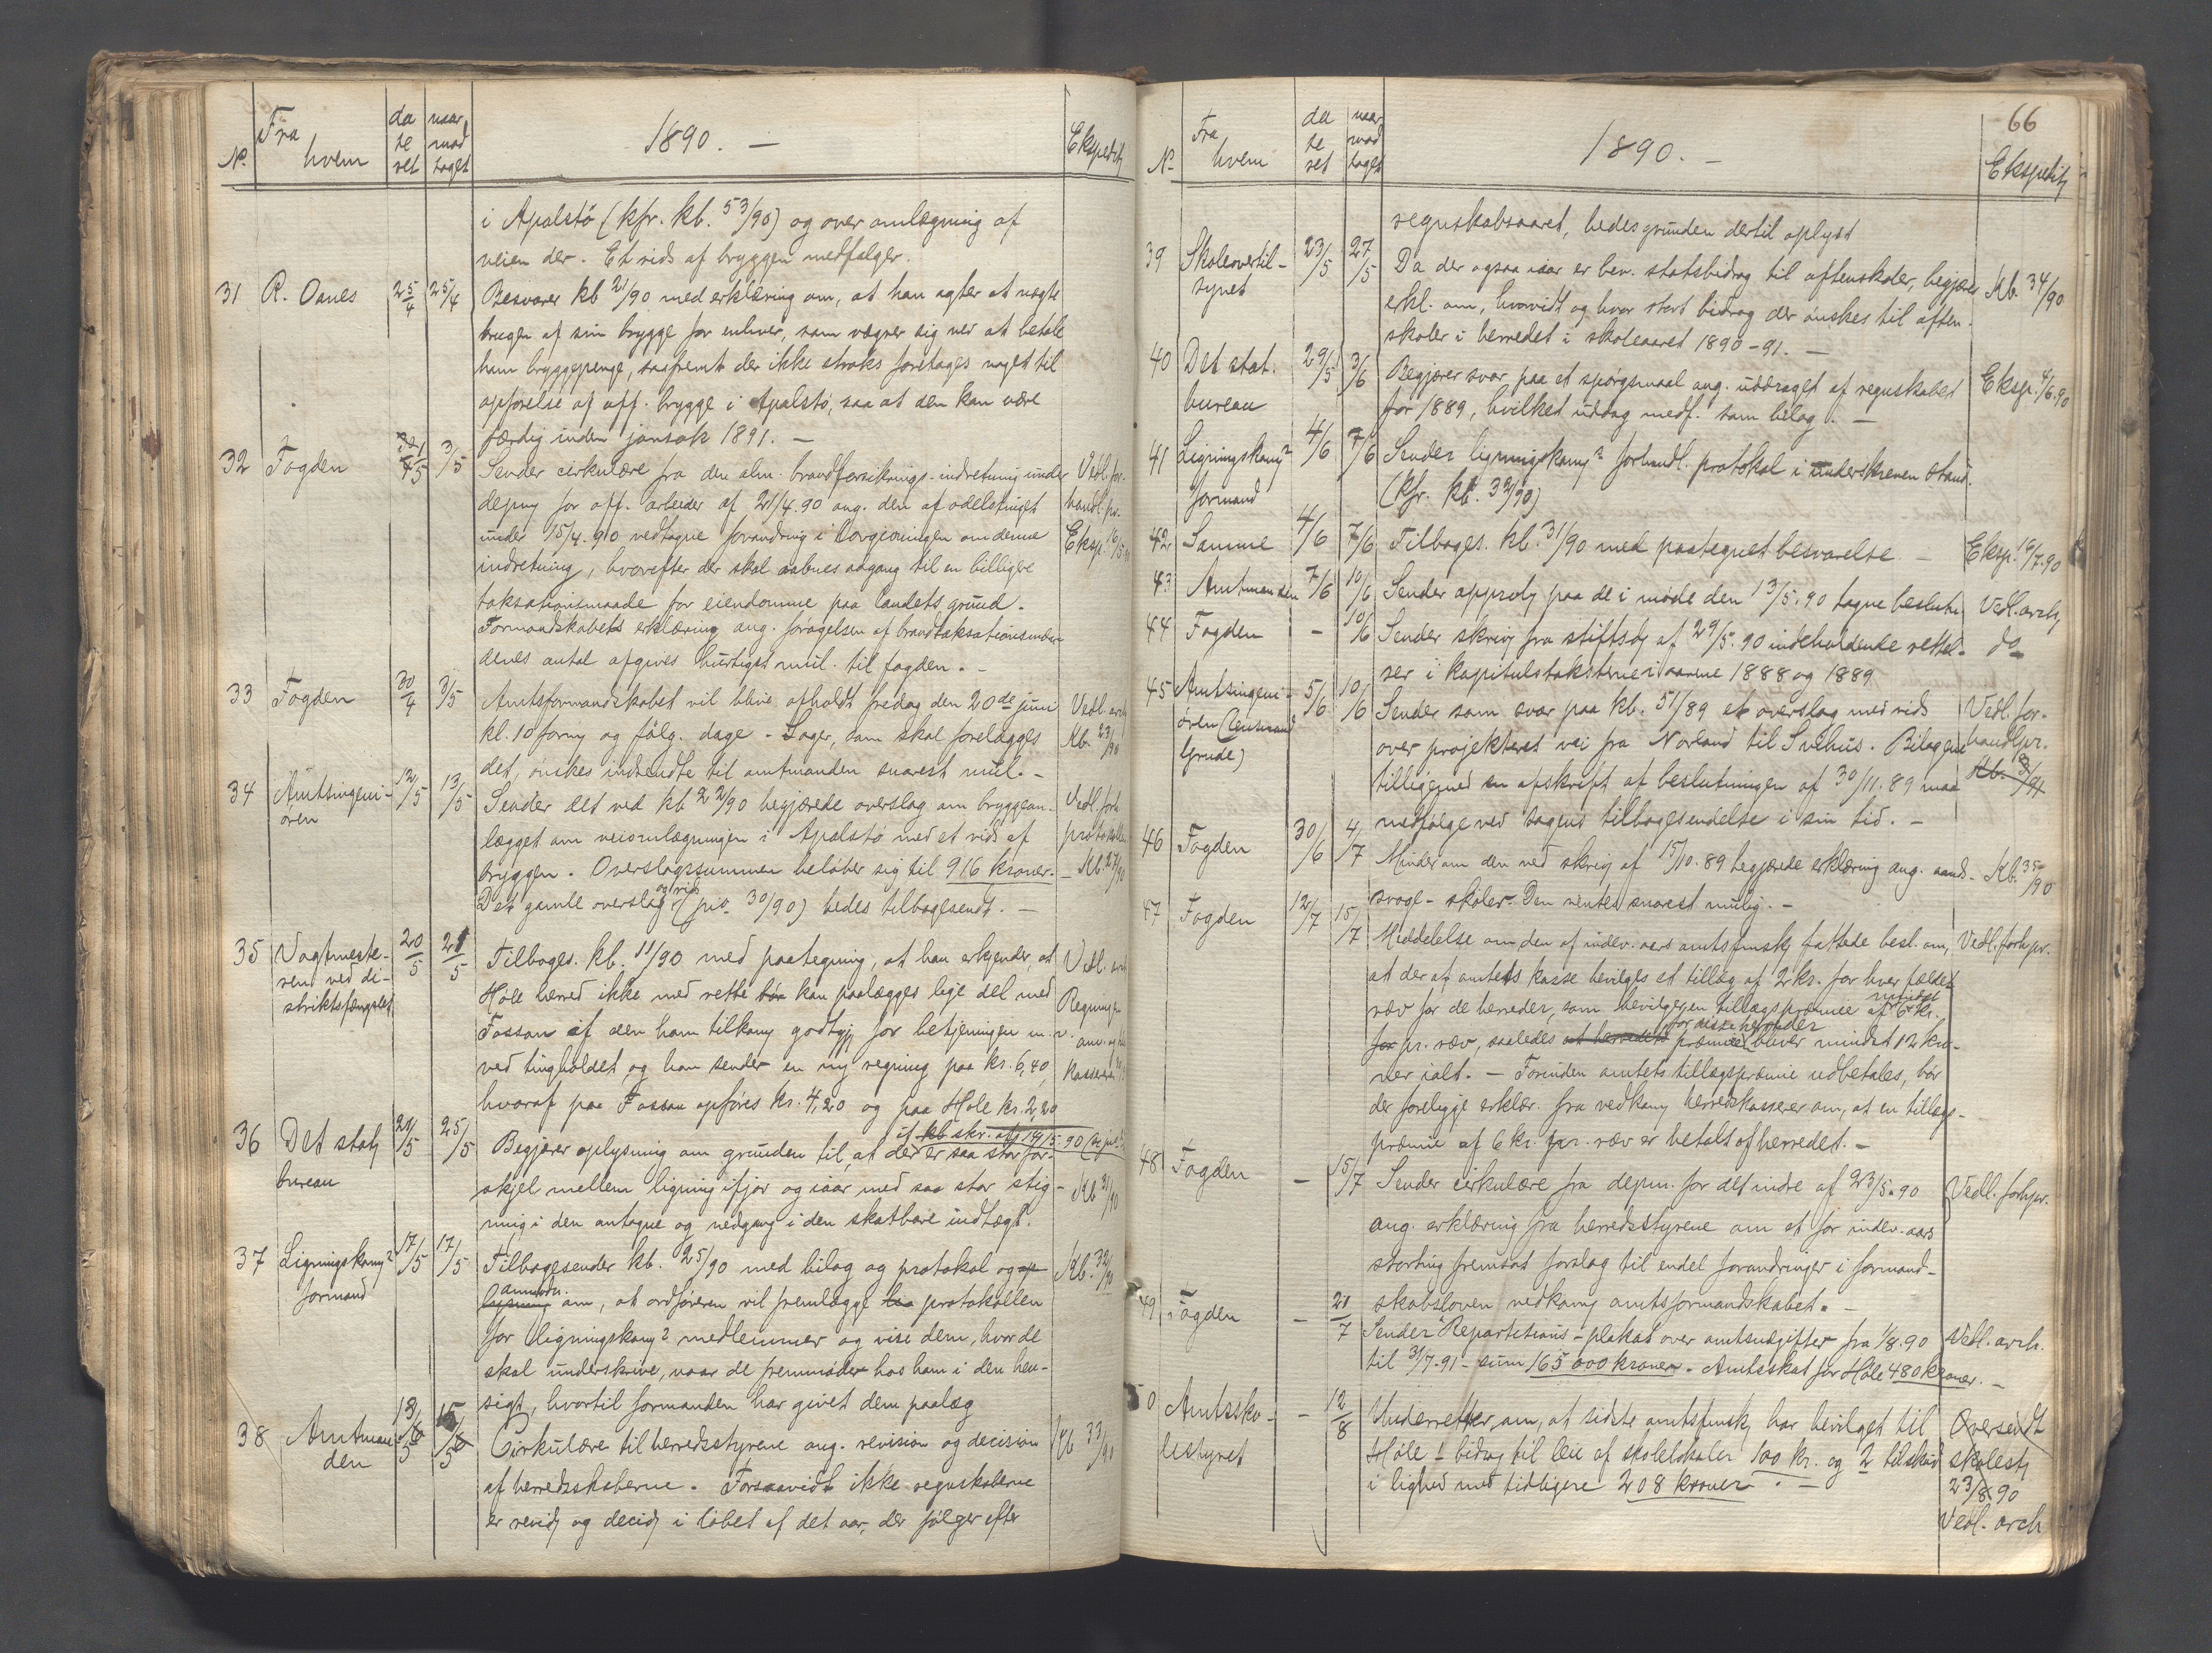 No. Fra hvem da te ret naar mod taget 1890. — Ekspedit
i Apalstø (kfr. kb. 53/90) og over omlægning af
veien der. Et rids af bryggen medfølger.
31 R. Oanes 25/4 25/4 Besvarer kb 21/90 med erklæring om, at han agter at nægte
brugen af sin brygge for enhver, som vægrer sig ved at betale
ham bryggepenge, saafremt der ikke straks foretages noget til
opførelse af off. brygge i Apalstø, saa at den kan være
færdig inden jonsok 1891. —
32 Fogden 3/5 Sender cirkulære fra den alm. brandforsikrings-indretning under Vedl. for-
depmg for off. arbeider af 21/4.90 ang. den af odelstinget handl.pr.
under 15/4.90 vedtagne forandring i lovgivningen om denne Eksp. 16/5
indretning, hvorefter der skal aabnes adgang til en billigere
taksationsmaade for eiendomme paa landets grund.
Formandskabets erklæring ang. forøgelsen af brandtaksationsmæn-
denes antal afgives hurtigst mul. til fogden. —
33 Fogden 30/4 3/5 Amtsformandskabet vil blive afholdt fredag den 20de juni Vedl arch
kl. 10 formg og følg. dage. Sager, som skal forelægges Kb. 23/90
det, ønskes indsendte til amtmanden snarest mul. —
34 Amtsingeni- 12/5 13/5 Sender det ved kb 22/90 begjærede overslag om bryggean- Vedl. forh
øren lægget om veiomlægningen i Apalstø med et rids af protokollen
bryggen. Overslagssummen beløber sig til 916 kroner. — Kb. 27/90
Det gamle overslag og rids (pio 30/90) bedes tilbagesendt. —
35 Vagtmeste- 20/5 21/5 Tilbages. kb. 11/90 med paategning, at han erkjender, at Vedl. arch
ren ved di- Høle herred ikke med rette kan paalægges lige del med Regningen
striktsfængslet Fossan af den ham tilkomg godtgj for betjeningen m.v. anv.
ved tingholdet, og han sender en ny regning paa kr. 6,40, kassereren
hvoraf paa Fossan opføres kr. 4,20 og paa Høle kr. 2,20
36 Det stat 22/5 25/5 Begjærer oplysning om grunden til, at der er saa stor for-
bureau skjel mellem ligning ifjor og iaar med saa stor stig- Kb 31/90
ning i den antagne og nedgang i den skatbare indtægt.
37 Ligningskomg 17/5 17/5 Tilbagesender kb. 25/90 med bilag og protokol og Kb. 32/90
formand anmodn. om, at ordføreren vil fremlægge protokollen
for ligningskomg medlemmer og vise dem, hvor de
skal underskrive, naar de fremmøder hos ham i den hen-
sigt, hvortil formanden har givet dem paalæg
38 Amtman 13/5 15/5 Cirkulære til herredsstyrene ang. revision og decision Kb 33/90
den af herredsskaberne. Forsaavidt ikke regnskaberne
er revid og decid i løbet af det aar, der følger efter
66
No. Fra hvem da te ret naar mod taget 1890. — Ekspedit
regnskabsaaret, bedes grunden dertil oplyst
39 Skoleovertil- 23/5 27/5 Da der ogsaa iaar er bev. statsbidrag til aftenskoler, begjæres Kb. 34/90
synet erkl. om, hvorvidt og hvor stort bidrag der ønskes til aften-
skoler i herredet i skoleaaret 1890-91. —
40 Det stat. 29/5 3/6 Begjærer svar paa et spørgsmaal ang. uddraget af regnskabet Eksp. 4/6.90
bureau for 1889, hvilket uddrag medf. som bilag. —
41 Ligningskomg 4/6 7/6 Sender ligningskomg forhandl. protokol i underskreven stand.
formand (kfr. kb. 32/90)
42 Samme 4/6 7/6 Tilbages. kb. 31/90 med paategnet besvarelse. — Eksp. 16/7.90
43 Amtmanden 7/6 10/6 Sender approb paa de i møde den 13/5.90 tagne beslutn Vedl. arch
44 Fogden — 10/6 Sender skriv fra stiftsdg af 29/5.90 indeholdende rettel- do
ser i kapitulstaksterne i aarene 1888 og 1889
45 Amtsingeni- 5/6 10/6 Sender som svar paa kb. 51/89 et overslag med rids Vedl. for-
øren (lensmand over projekteret vei fra Norland til Svihus. Bilagene handlpr.
Grude) tilligemed en afskrift af beslutningen af 30/11.89 maa
medfølge ved sagens tilbagesendelse i sin tid. —
46 Fogden 30/6 4/7 Minder om den ved skriv af 15/10.89 begjærede erklæring ang. aands- Kb. 35/90
svage-skoler. Den ventes snarest mulig. —
47 Fogden 12/7 15/7 Meddelelse om den af indev. aars amtsfmsk fattede besl. om, Vedl. forh.pr.
at der af amtets kasse bevilges et tillæg af 2 kr. for hver fældet
ræv for de herreder, som bevilger en tillægspræmie af mindst 6 kr.
pr. ræv, saaledes at præmien for disse herreder bliver mindst 12 kro-
ner ialt. — Forinden amtets tillægspræmie udbetales, bør
der foreligge erklær. fra vedkomg herredskasserer om, at en tillægs-
præmie af 6 kr. pr. ræv er betalt af herredet. —
48 Fogden — 15/7 Sender cirkulære fra depm. for det indre af 23/5.90 Vedl. forh.pr.
ang. erklæring fra herredsstyrene om et for indev. aars
storting fremsat forslag til endel forandringer i formand-
skabsloven vedkomg amtsformandskabet. —
49 Fogden — 21/7 Sender "Repartitions-plakat over amtsudgifter fra 1/8.90 Vedl. arch.
til 31/7.91 - sum 165 000 kroner. Amtsskat for Høle 480 kroner. —
50 Amtssko- — 12/8 Underretter om, at sidste amtsfmsk har bevilget til Oversendt
lestyret Høle 1 bidrag til leie af skolelokaler 100 kr. og 2 tilskud skolest
i lighed med tidligere 208 kroner. — 23/8.90
Vedl. arch